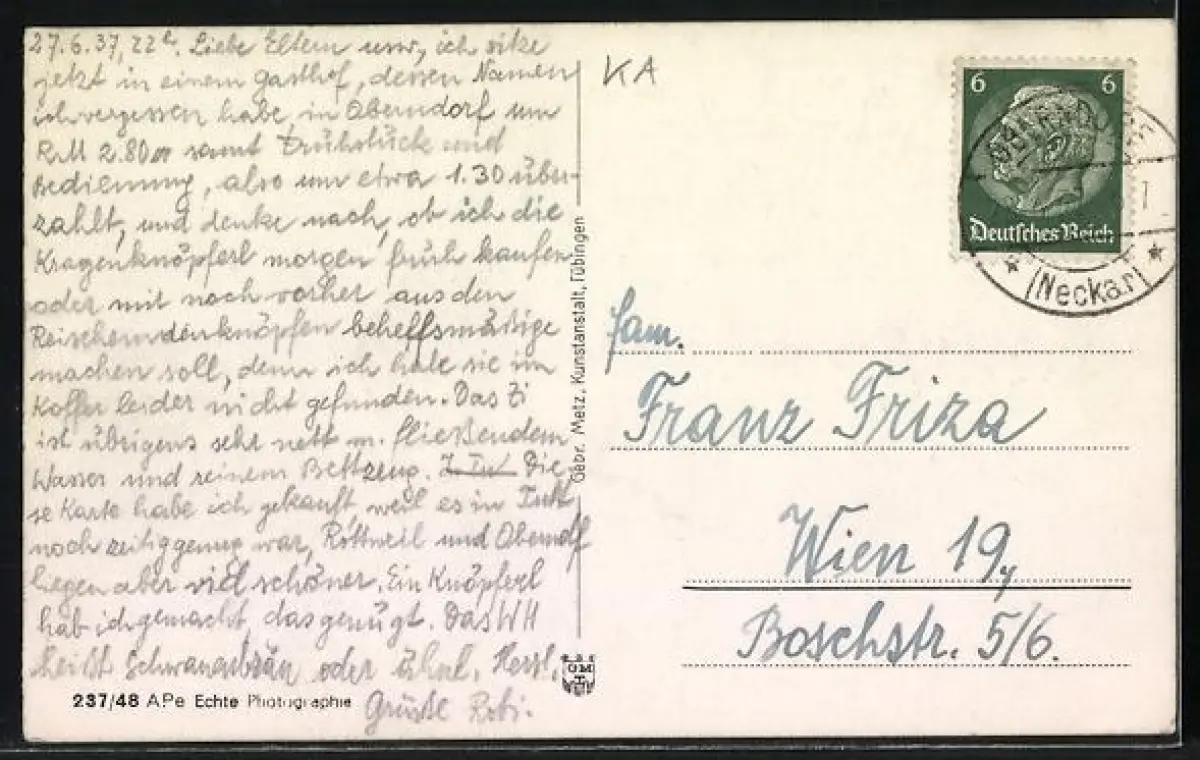 27.6.37, 22h. Liebe Eltern usw, ich sitze
jetzt in einem Gasthof, dessen Namen
ich vergessen habe, in Oberndorf um
RM 2.80 samt Frühstück und
Bedienung, also um etwa 1.30 über-
zahlt, und denke nach, ob ich die
Kragenknöpferl morgen früh kaufen
oder mit noch vorher aus den
behelfsmäßige
machen soll, denn ich habe sie im
Koffer leider nicht gefunden. Das Zi
ist übrigens sehr nett m. fließendem
Wasser und reinem Bettzeug. Die-
se Karte habe ich gekauft weil es in Tutt
noch zeitig genug war, Rottweil und Oberndf
liegen aber viel schöner. Ein Knöpferl
hab ich gemacht, das genügt. Das WH
heißt oder ähnl. Herzl.
Grüße Robi.
237/48 APe Echte Photographie
Gebr. Metz, Kunstanstalt, Tübingen
GMT
KA
6 6
Deutsches Reich
(Neckar)
Fam.
Franz Friza
Wien 19,
Boschstr. 5/6.